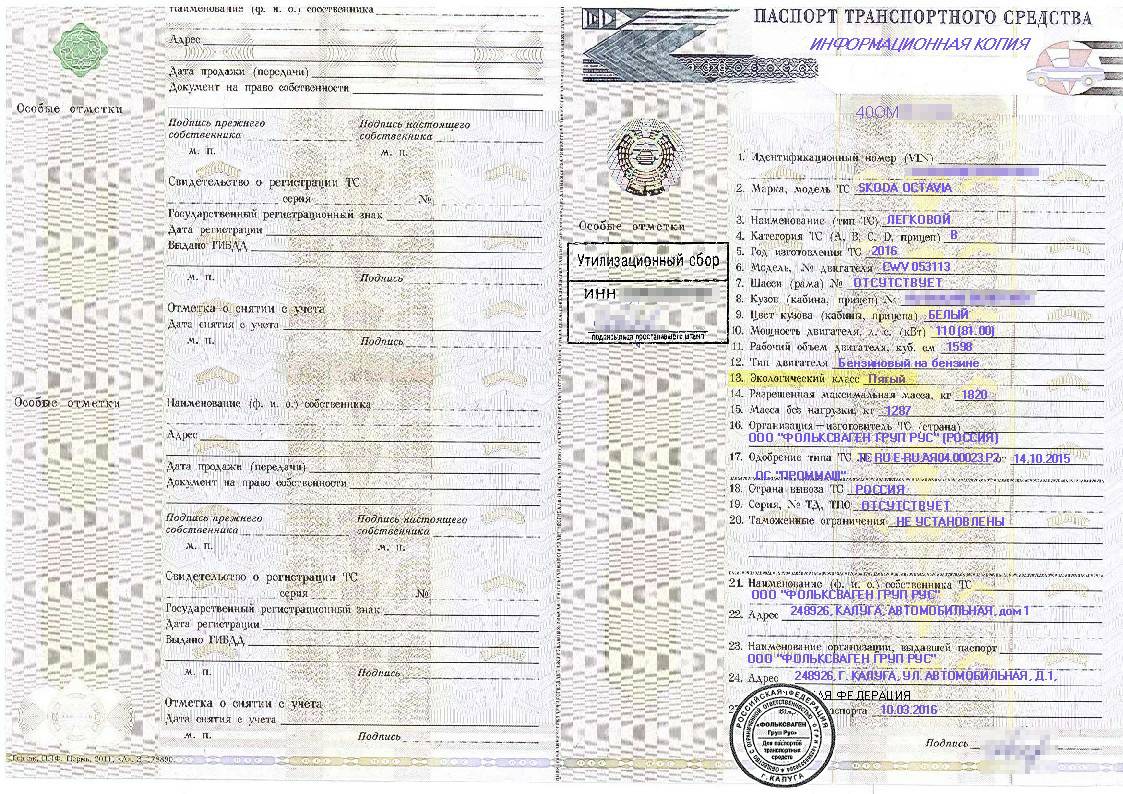 Наименование (ф. и. о.) собственника
Адрес
Дата продажи (передачи)
Документ на право собственности
Особые отметки
Подпись прежнего собственника
Подпись настоящего собственника
м. п.
м. п.
Свидетельство о регистрации ТС
серия №
Государственный регистрационный знак
Дата регистрации
Выдано ГИБДД
м. п. Подпись
Отметка о снятии с учета
Дата снятия с учета
м. п. Подпись
Особые отметки
Наименование (ф. и. о.) собственника
Адрес
Дата продажи (передачи)
Документ на право собственности
Подпись прежнего собственника
Подпись настоящего собственника
м. п.
м. п.
Свидетельство о регистрации ТС
серия №
Государственный регистрационный знак
Дата регистрации
Выдано ГИБДД
м. п. Подпись
Отметка о снятии с учета
Дата снятия с учета
м. п. Подпись
ПАСПОРТ ТРАНСПОРТНОГО СРЕДСТВА
ИНФОРМАЦИОННАЯ КОПИЯ
40ОМ
Особые отметки
Утилизационный сбор
ИНН
1. Идентификационный номер (VIN)
2. Марка, модель ТС SKODA OCTAVIA
3. Наименование (тип ТС) ЛЕГКОВОЙ
4. Категория ТС (A, B, C, D, прицеп) B
5. Год изготовления ТС 2016
6. Модель, № двигателя CWV 053113
7. Шасси (рама) № ОТСУТСТВУЕТ
8. Кузов (кабина, прицеп) №
9. Цвет кузова (кабины, прицепа) БЕЛЫЙ
10. Мощность двигателя, л. с. (кВт) 110 (81.00)
11. Рабочий объем двигателя, куб. см 1598
12. Тип двигателя Бензиновый на бензине
13. Экологический класс Пятый
14. Разрешенная максимальная масса, кг 1820
15. Масса без нагрузки, кг 1287
16. Организация-изготовитель ТС (страна)
ООО "ФОЛЬКСВАГЕН ГРУП РУС" (РОССИЯ)
17. Одобрение типа ТС № ТС RU E-RU.АЯ04.00023.Р2 от 14.10.2015
ОС "ПРОММАШ"
18. Страна вывоза ТС РОССИЯ
19. Серия, № ТД, ТПО ОТСУТСТВУЕТ
20. Таможенные ограничения НЕ УСТАНОВЛЕНЫ
21. Наименование (ф. и. о.) собственника ТС
ООО "ФОЛЬКСВАГЕН ГРУП РУС"
22. Адрес 248926, КАЛУГА, АВТОМОБИЛЬНАЯ, дом 1
23. Наименование организации, выдавшей паспорт
ООО "ФОЛЬКСВАГЕН ГРУП РУС"
24. Адрес 248926, Г. КАЛУГА, УЛ. АВТОМОБИЛЬНАЯ, Д.1,
АЯ ФЕДЕРАЦИЯ
паспорта 10.03.2016
Подпись
РОССИЙСКАЯ ФЕДЕРАЦИЯ
«ФОЛЬКСВАГЕН
Груп Рус»
Для паспортов
транспортных
средств
Г. КАЛУГА